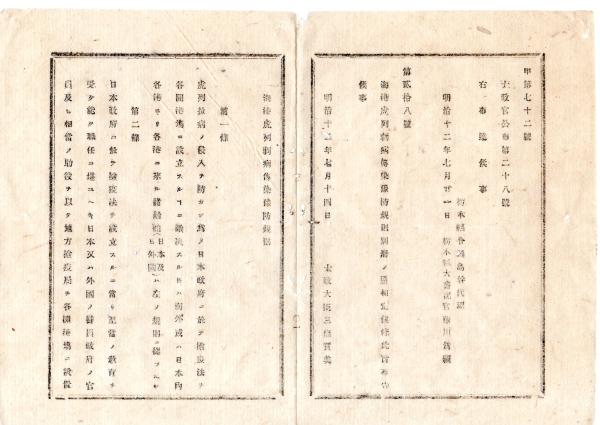 甲第七十二號
太政官公布第二十八號
右布達候事
明治十二年七月廿一日
第貳拾八號
海港虎列剌病傳染豫防規則別冊ノ通相定候條此旨布告
候事
明治十二年七月十四日 太政大臣三條實美
海港虎列剌病傳染豫防規則
第一條
虎列拉病ノ侵入ヲ防カン爲メ日本政府ニ於テ檢疫法ヲ
各開港塲ニ設立スルコニ議决スルトキハ
各港ヨリ各港ニ來ル諸船舶(日本及ヒ外國)ハ左ノ規則ニ
第二條
日本政府ニ於テ檢疫法ヲ設立スルニ當リ至當ノ教育ヲ
受ケ總テ職任ニ堪ユヘキ日本又ハ外國ノ醫員政府ノ官
員及ヒ相當ノ助役ヲ以テ地方檢疫局ヲ各開港塲ニ設置